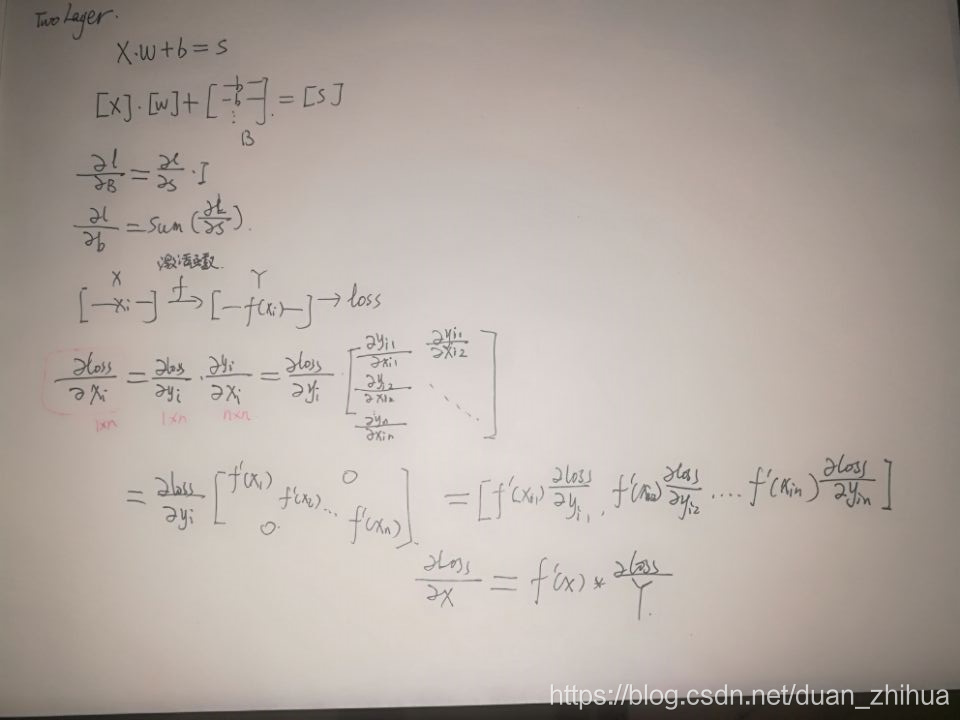 Two Layer.
X·W+b=s
[X]·[W]+[-b- -b- ⋮]=[S]
B
∂l/∂B = ∂l/∂s · I
∂l/∂b = Sum(∂l/∂s).
X 激活函数 Y
[—xi—] f→ [—f(xi)—] → loss
∂loss/∂xi = ∂loss/∂yi · ∂yi/∂xi = ∂loss/∂yi · [∂yi1/∂xi1 ∂yi1/∂xi2 ∂yi2/∂xin ∂yn/∂xin]
1×n 1×n n×n
= ∂loss/∂yi [f'(x1) 0 f'(x2)... 0 f'(xn)]. = [f'(xi1) ∂loss/∂yi1, f'(xi2) ∂loss/∂yi2 .... f'(xin) ∂loss/∂yin]
∂loss/∂X = f'(X) * ∂loss/Y.
https://blog.csdn.net/duan_zhihua